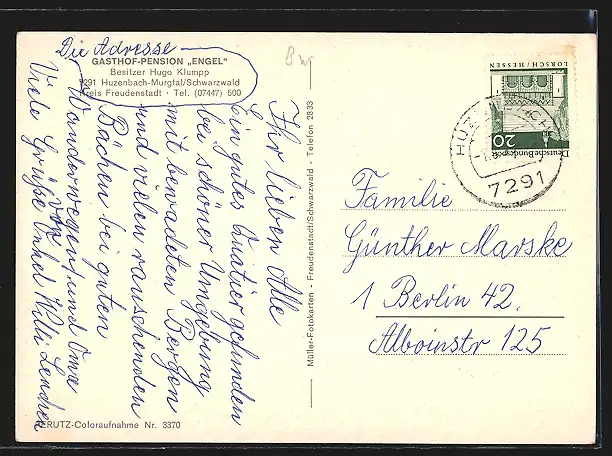 Die Adresse —
GASTHOF-PENSION „ENGEL"
Besitzer Hugo Klumpp
7291 Huzenbach-Murgtal/Schwarzwald
Kreis Freudenstadt · Tel. (07447) 500
Ihr lieben Alle
Ein gutes Quatier gefunden
bei schöner Umgebung
mit bewadeten Bergen
und vielen rauschenden
Bächen bei guten
Wanderwegen
Viele Grüße von Onkel Willi und Oma
PERUTZ-Coloraufnahme Nr. 3370
Müller-Fotokarten - Freudenstadt/Schwarzwald - Telefon 2833
Bwj
LORSCH/HESSEN
20
Deutsche Bundespost
7291
Familie
Günther Marske
1 Berlin 42.
Alboinstr 125